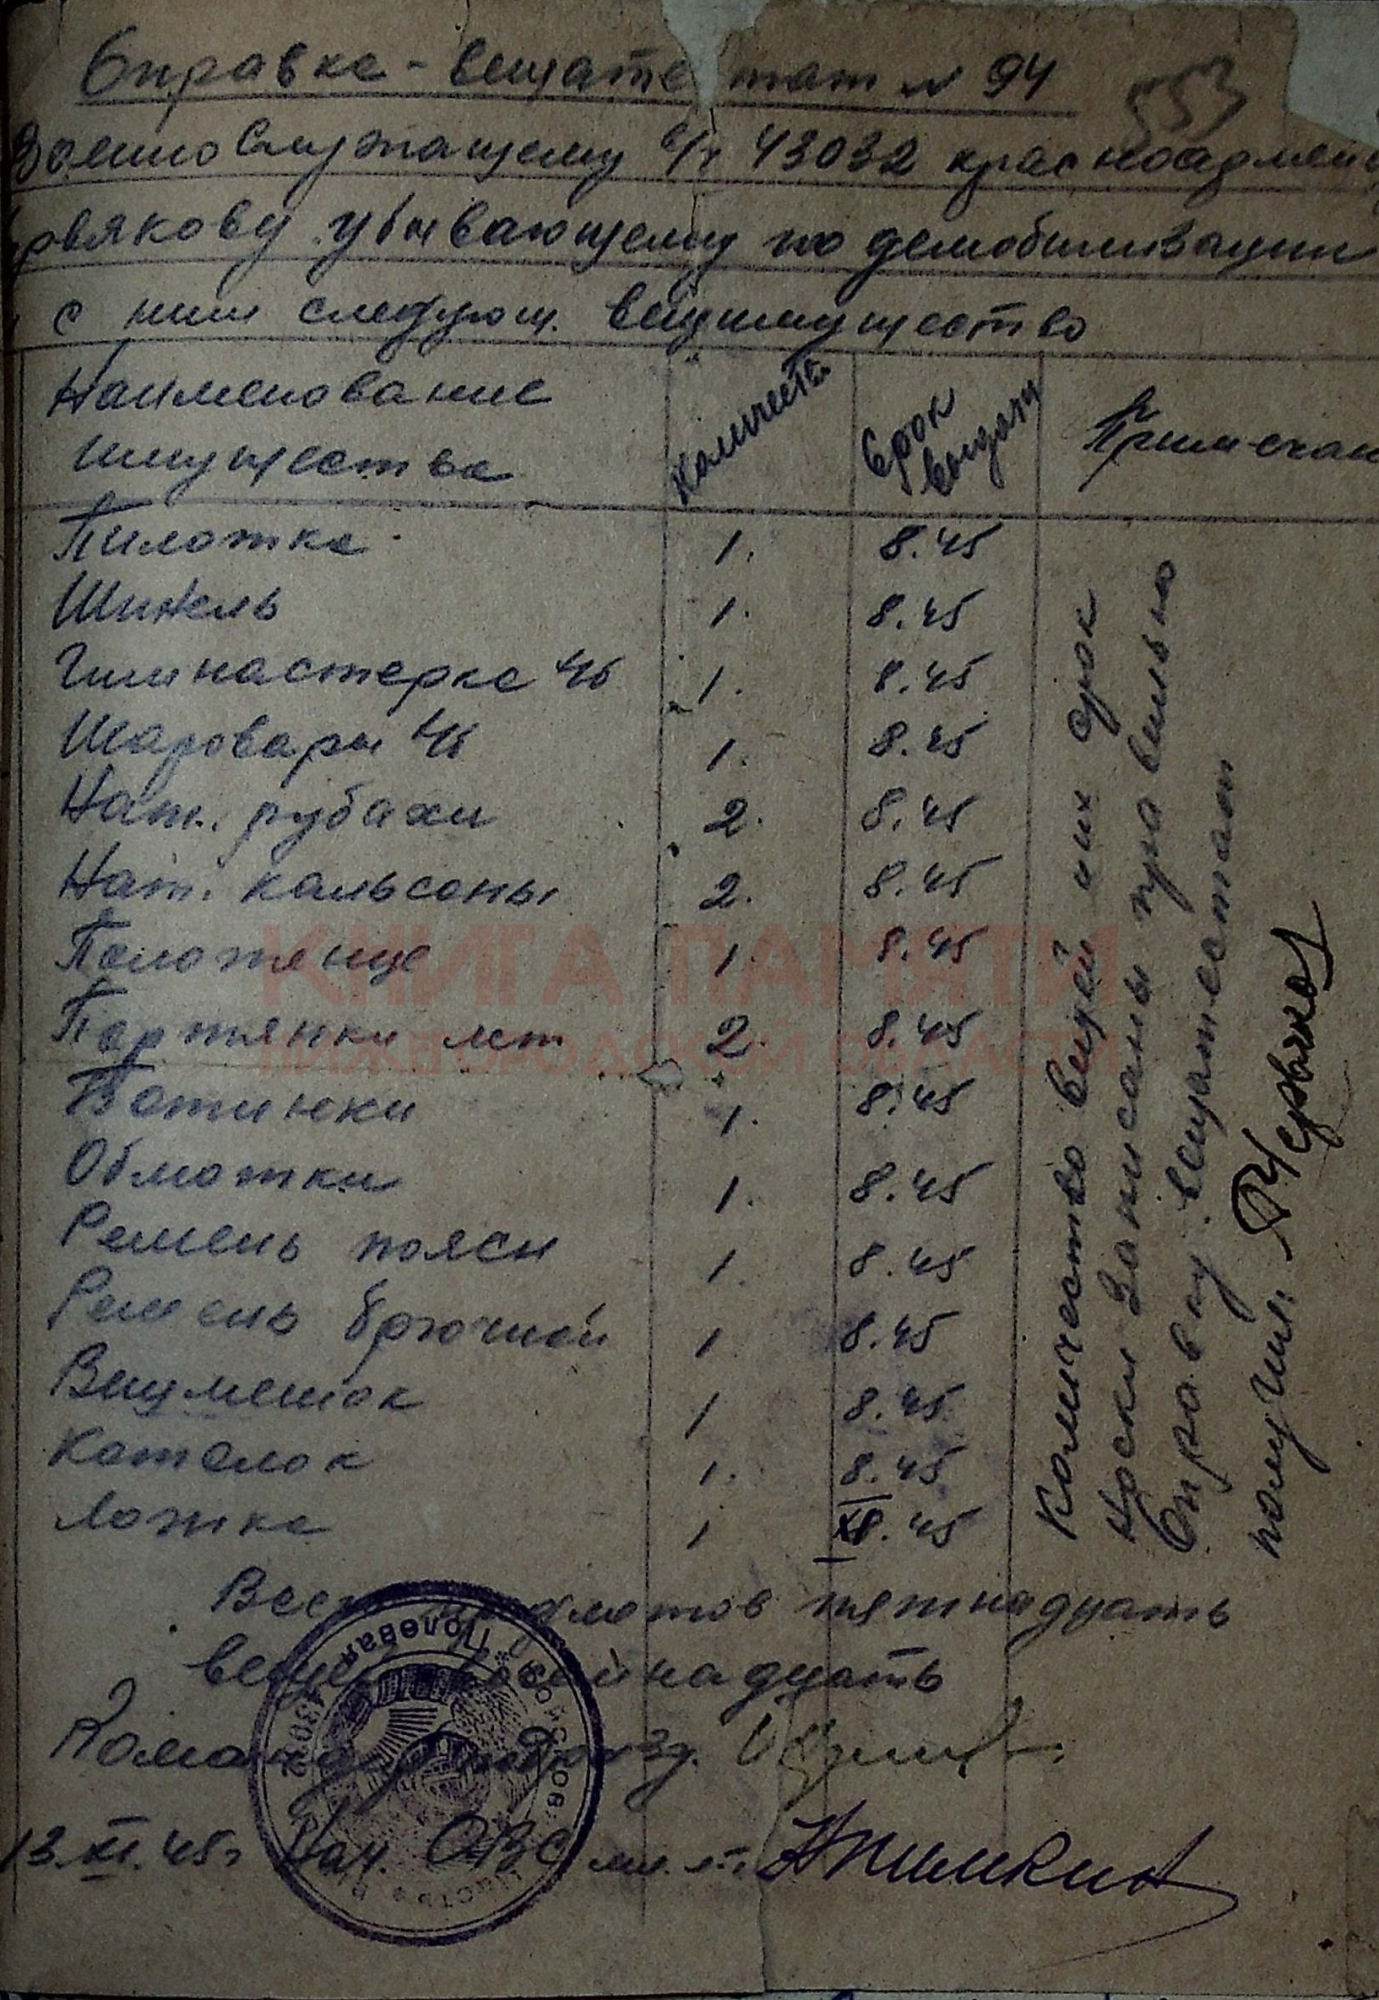 Справка - вещатестат № 94
553
Военнослужащему в/ч 43032 красноармейц
рвякову убывающему по демобилизации
с ним следующ. вещимущество
Наименование имущества Количеств Срок выдачи Примечан
Пилотка 1. 8.45
Шинель 1. 8.45
Гимнастерка х/б 1. 8.45
Шаровары х/б 1. 8.45
Нат. рубахи 2. 8.45
Нат. кальсоны 2. 8.45
Полотенце 1. 8.45
Портянки лет 2. 8.45
Ботинки 1. 8.45
Обмотки 1. 8.45
Ремень поясн 1. 8.45
Ремень брючной 1. 8.45
Вещмешок 1 8.45
Котелок 1. 8.45
Ложка 1 8.45
Количество вещей и их срок
носки записаны правильно
Справку вещатестат
получил: Червяков
Всего предметов пятнадцать
вещей восемнадцать
Командир подразд.
13.XI.45г Нач. ОВС мл. л-т.
Полевая
43032
КНИГА ПАМЯТИ
НИЖЕГОРОДСКОЙ ОБЛАСТИ